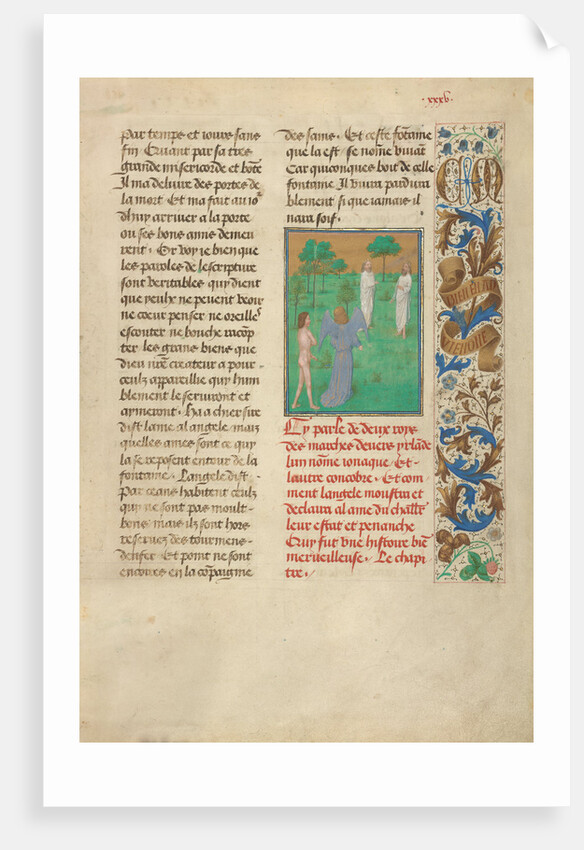 .xxxv.
par temps et iours sans
fin Viuant par sa tres
grande misericorde et bōte
Il ma deliure des portes de
la mort Et ma fait au io
dhuy arriuer a la porte
ou ses bons amis demeu
rent. Or voy ie bien que
les paroles de lescripture
sont veritables qui dient
que yeulx ne peuent veoir
ne coeur penser ne oreilles
escouter ne bouche racōp
ter les grans biens que
dieu nr̄e createur a pour
ceulz appareillie qui hum
blement le seruiront et
aymeront. Ha a chier sire
dist lame al angele mais
quelles ames sont ce qui
la se reposent entour de la
fontaine. Langele dist.
Par ceans habitent ceulz
qui ne sont pas moult
bons mais ilz sont hors
reseruez des tourmens
denfer Et point ne sont
encores en la cōpaignie
des sains. Et ceste fōtaine
que la est se nōme viuāt
Car quiconques boit de celle
fontaine Il viura pardura
blement si que iamais il
naura soif.
Cy parle de deux roys
des marches deuers yrlāde
lun nōme ionaque Et
lautre concobre. Et com
ment langele moustra et
declaira al ame du challr̄
leur estat et penance
Quy fut vne histoire biē
merueilleuse. Le chapi
tre.
C M
BIEN EN AD
VIENGNE